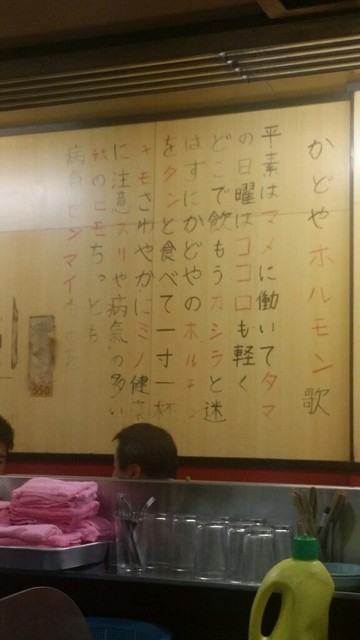 かどやホルモン歌
平素はマメに働いてタマ
の日曜はココロも軽く
どこで飲もうカシラと迷
はずにかどやのホルモン
をタンと食べて一寸一杯
キモさわやかにミノ健康
に注意スリや病気の多い
秋のヒモちっとも
病気
550